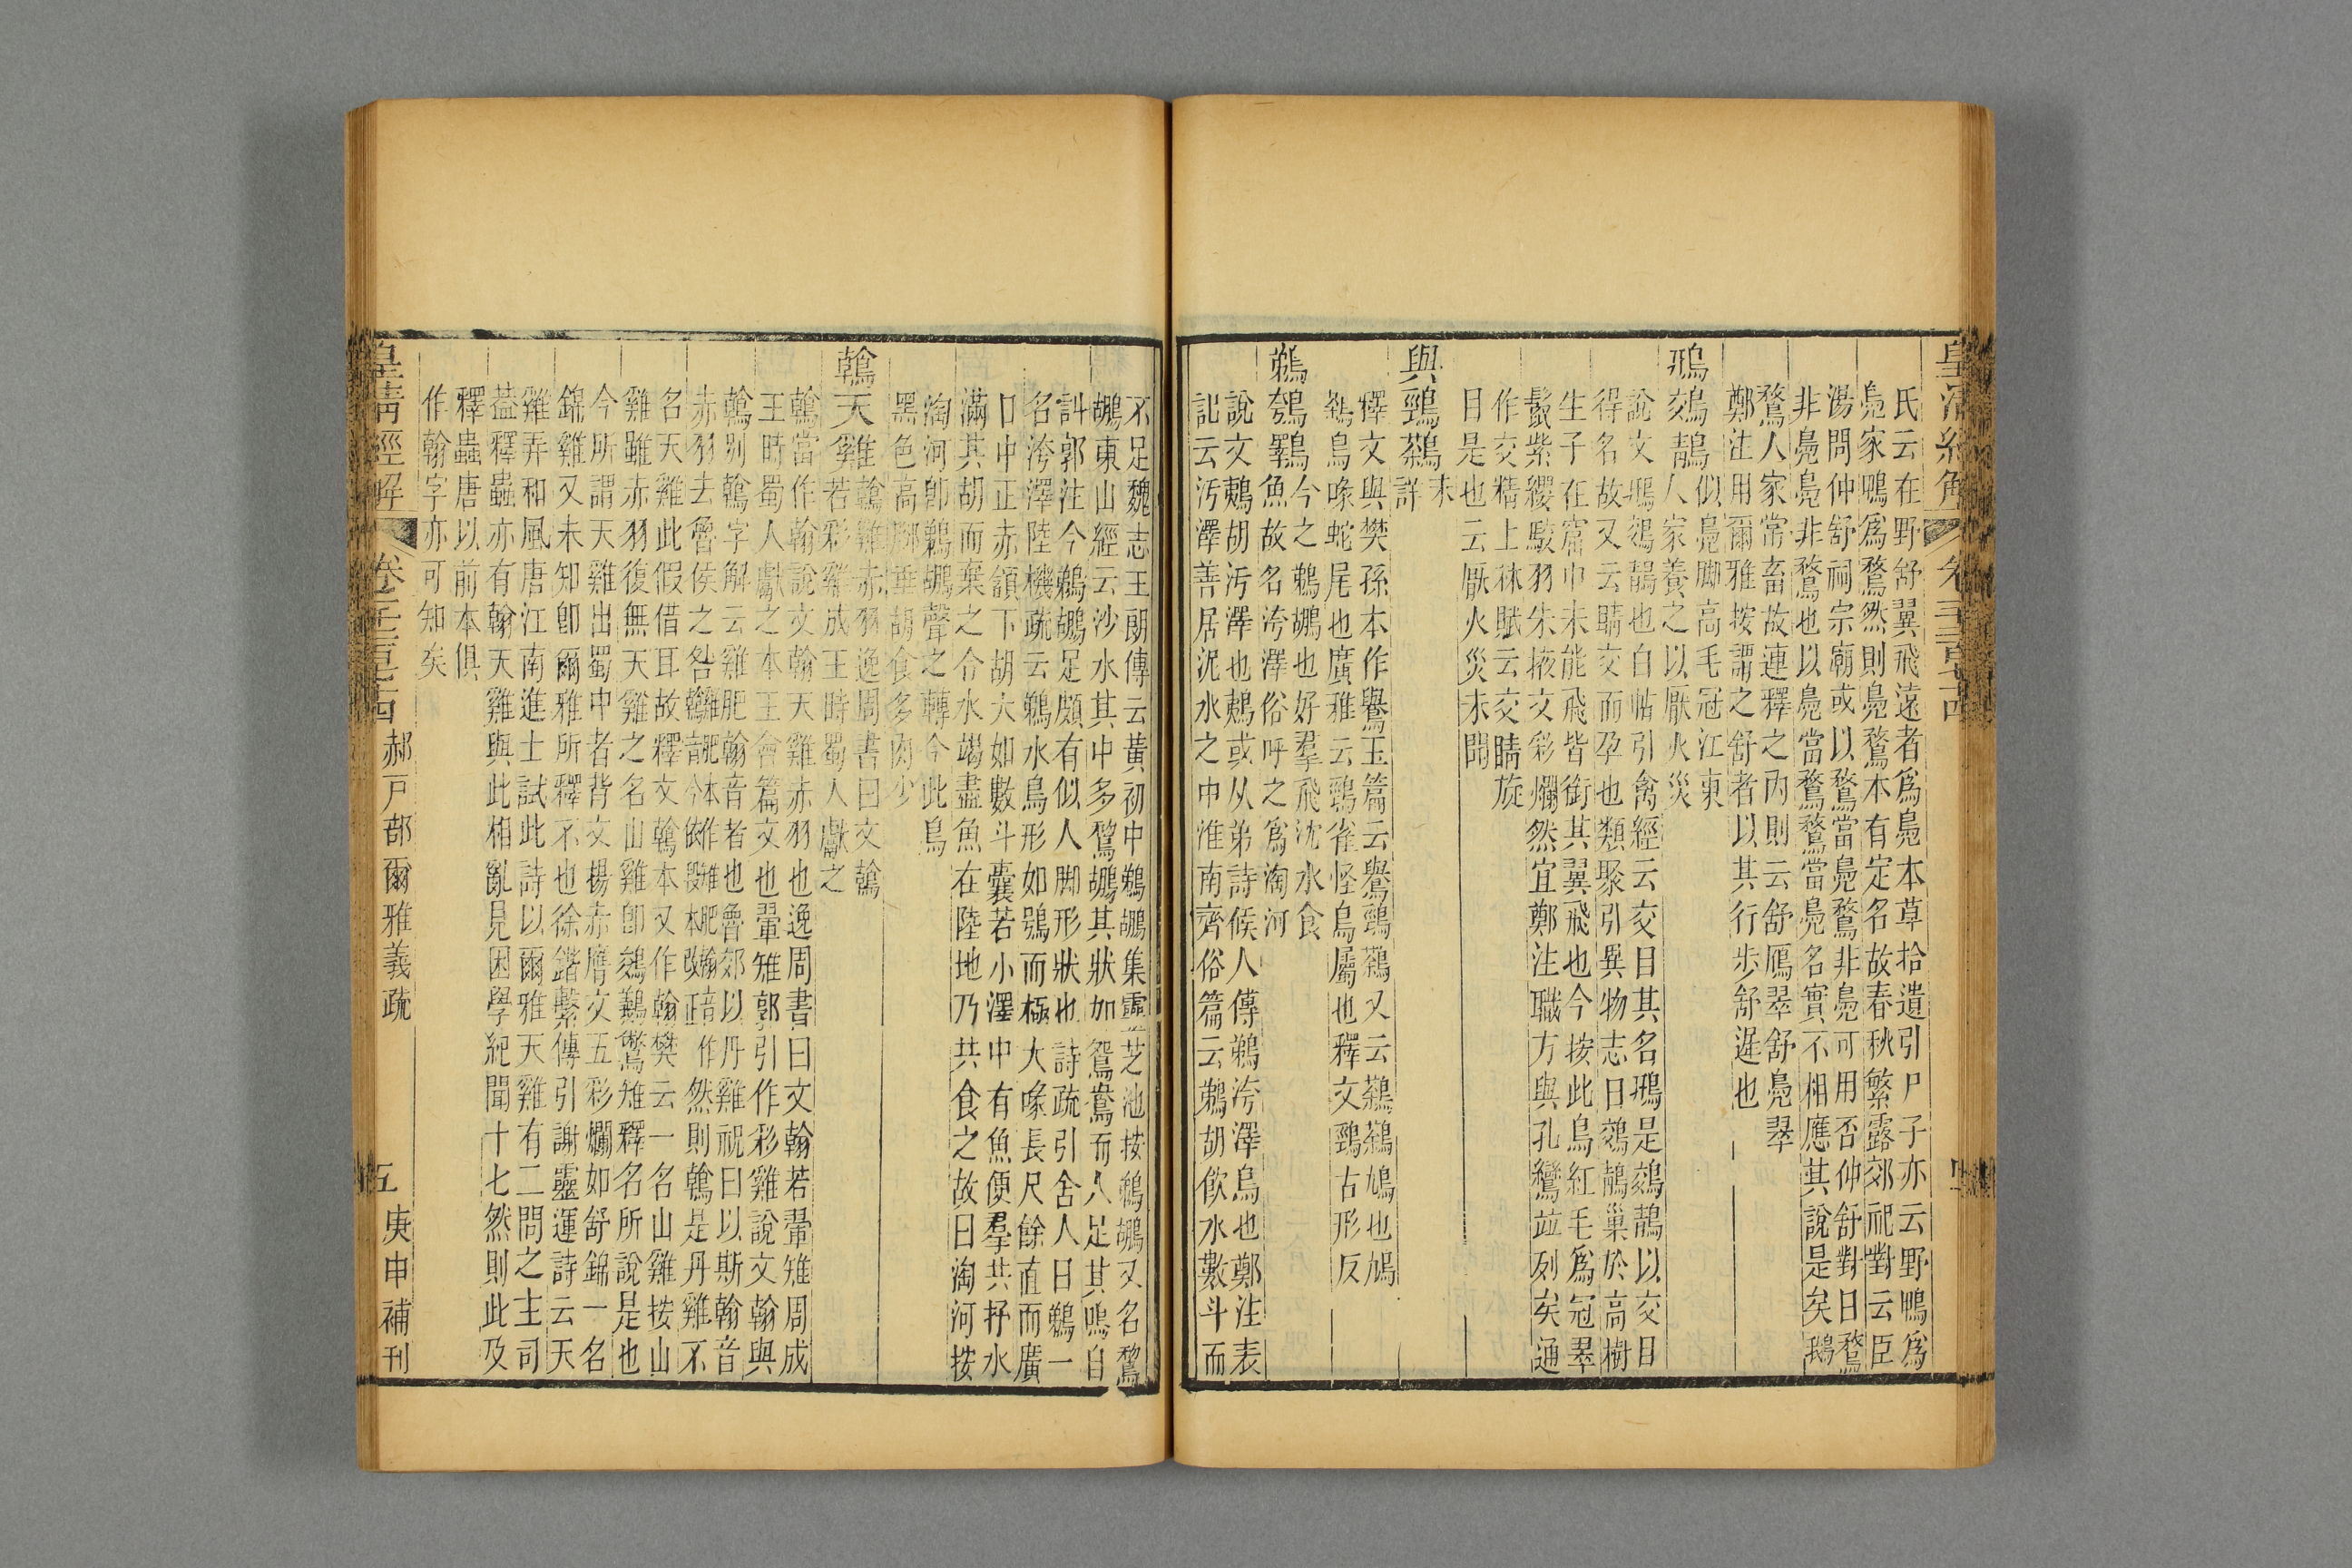 皇清經解
氏云在野舒翼飛遠者爲鳧本草拾遺引尸子亦云野鴨爲
鳧家鴨爲鶩然則鳧鶩本有定名故春秋繁露郊祀對云臣
湯問仲舒祠宗廟或以鶩當鳧鶩非鳧可用否仲舒對曰鶩
非鳧鳧非鶩也以鳧當鶩鶩當鳧名實不相應其說是矣鵝
鶩人家常畜故連釋之内則云舒鴈翠舒鳧翠
鄭注用爾雅按謂之舒者以其行步舒遲也
鳽鵁鶄似鳧脚高毛冠江東
人家養之以厭火災
說文鳽鵁鶄也白帖引禽經云交目其名鳽是鵁鶄以交目
得名故又云睛交而孕也類聚引異物志曰鵁鶄巢於高樹
生子在窟中未能飛皆銜其翼飛也今按此鳥紅毛爲冠翠
鬛紫纓駮羽朱掖文彩爛然宜鄭注職方與孔鸞竝列矣通
作交精上林賦云交睛旋
目是也云厭火災未聞
與鵛鷋未
詳
釋文與樊孫本作鸒玉篇云鸒鵛鷋又云鷋鷋鳩也鳩
鷋鳥喙蛇尾也廣雅云鵛雀怪鳥屬也釋文鵛古形反
鵜鴮鸅今之鵜鶘也好羣飛沈水食
魚故名洿澤俗呼之爲淘河
說文鵜胡汚澤也鵜或从弟詩候人傳鵜洿澤鳥也鄭注表
記云汚澤善居泥水之中淮南齊俗篇云鵜胡飲水數斗而
不足魏志王朗傳云黃初中鵜鶘集靈芝池按鵜鶘又名鶩
鶘東山經云沙水其中多鶩鶘其狀如鴛鴦而人足其鳴自
訆郭注今鵜鶘足頗有似人脚形狀也詩疏引舍人曰鵜一
名洿澤陸機疏云鵜水鳥形如鶚而極大喙長尺餘直而廣
口中正赤頷下胡大如數斗囊若小澤中有魚便羣共抒水
滿其胡而棄之令水竭盡魚在陸地乃共食之故曰淘河按
淘河卽鵜鶘聲之轉今此鳥
黑色高脚垂胡食多肉少
鶾天雞鶾雞赤羽逸周書曰文鶾
若彩雞成王時蜀人獻之
鶾當作翰說文翰天雞赤羽也逸周書曰文翰若翬雉周成
王時蜀人獻之本王會篇文也翬雉郭引作彩雞說文翰與
鶾別鶾字解云雞肥翰音者也魯郊以丹雞祝曰以斯翰音
赤羽去魯侯之咎 然則鶾是丹雞不
名天雞此假借耳故釋文鶾本又作翰樊云一名山雞按山
雞雖赤羽復無天雞之名山雞卽鵕鸃鷩雉釋名所說是也
今所謂天雞出蜀中者背文楊赤膺文五彩爛如舒錦一名
錦雞又未知卽爾雅所釋不也徐鍇繫傳引謝靈運詩云天
雞弄和風唐江南進士試此詩以爾雅天雞有二問之主司
葢釋蟲亦有翰天雞與此相亂見困學紀聞十七然則此及
釋蟲唐以前本俱
作翰字亦可知矣
皇清經解
卷千二百七十四
郝戸部爾雅義疏
五
庚申補刊